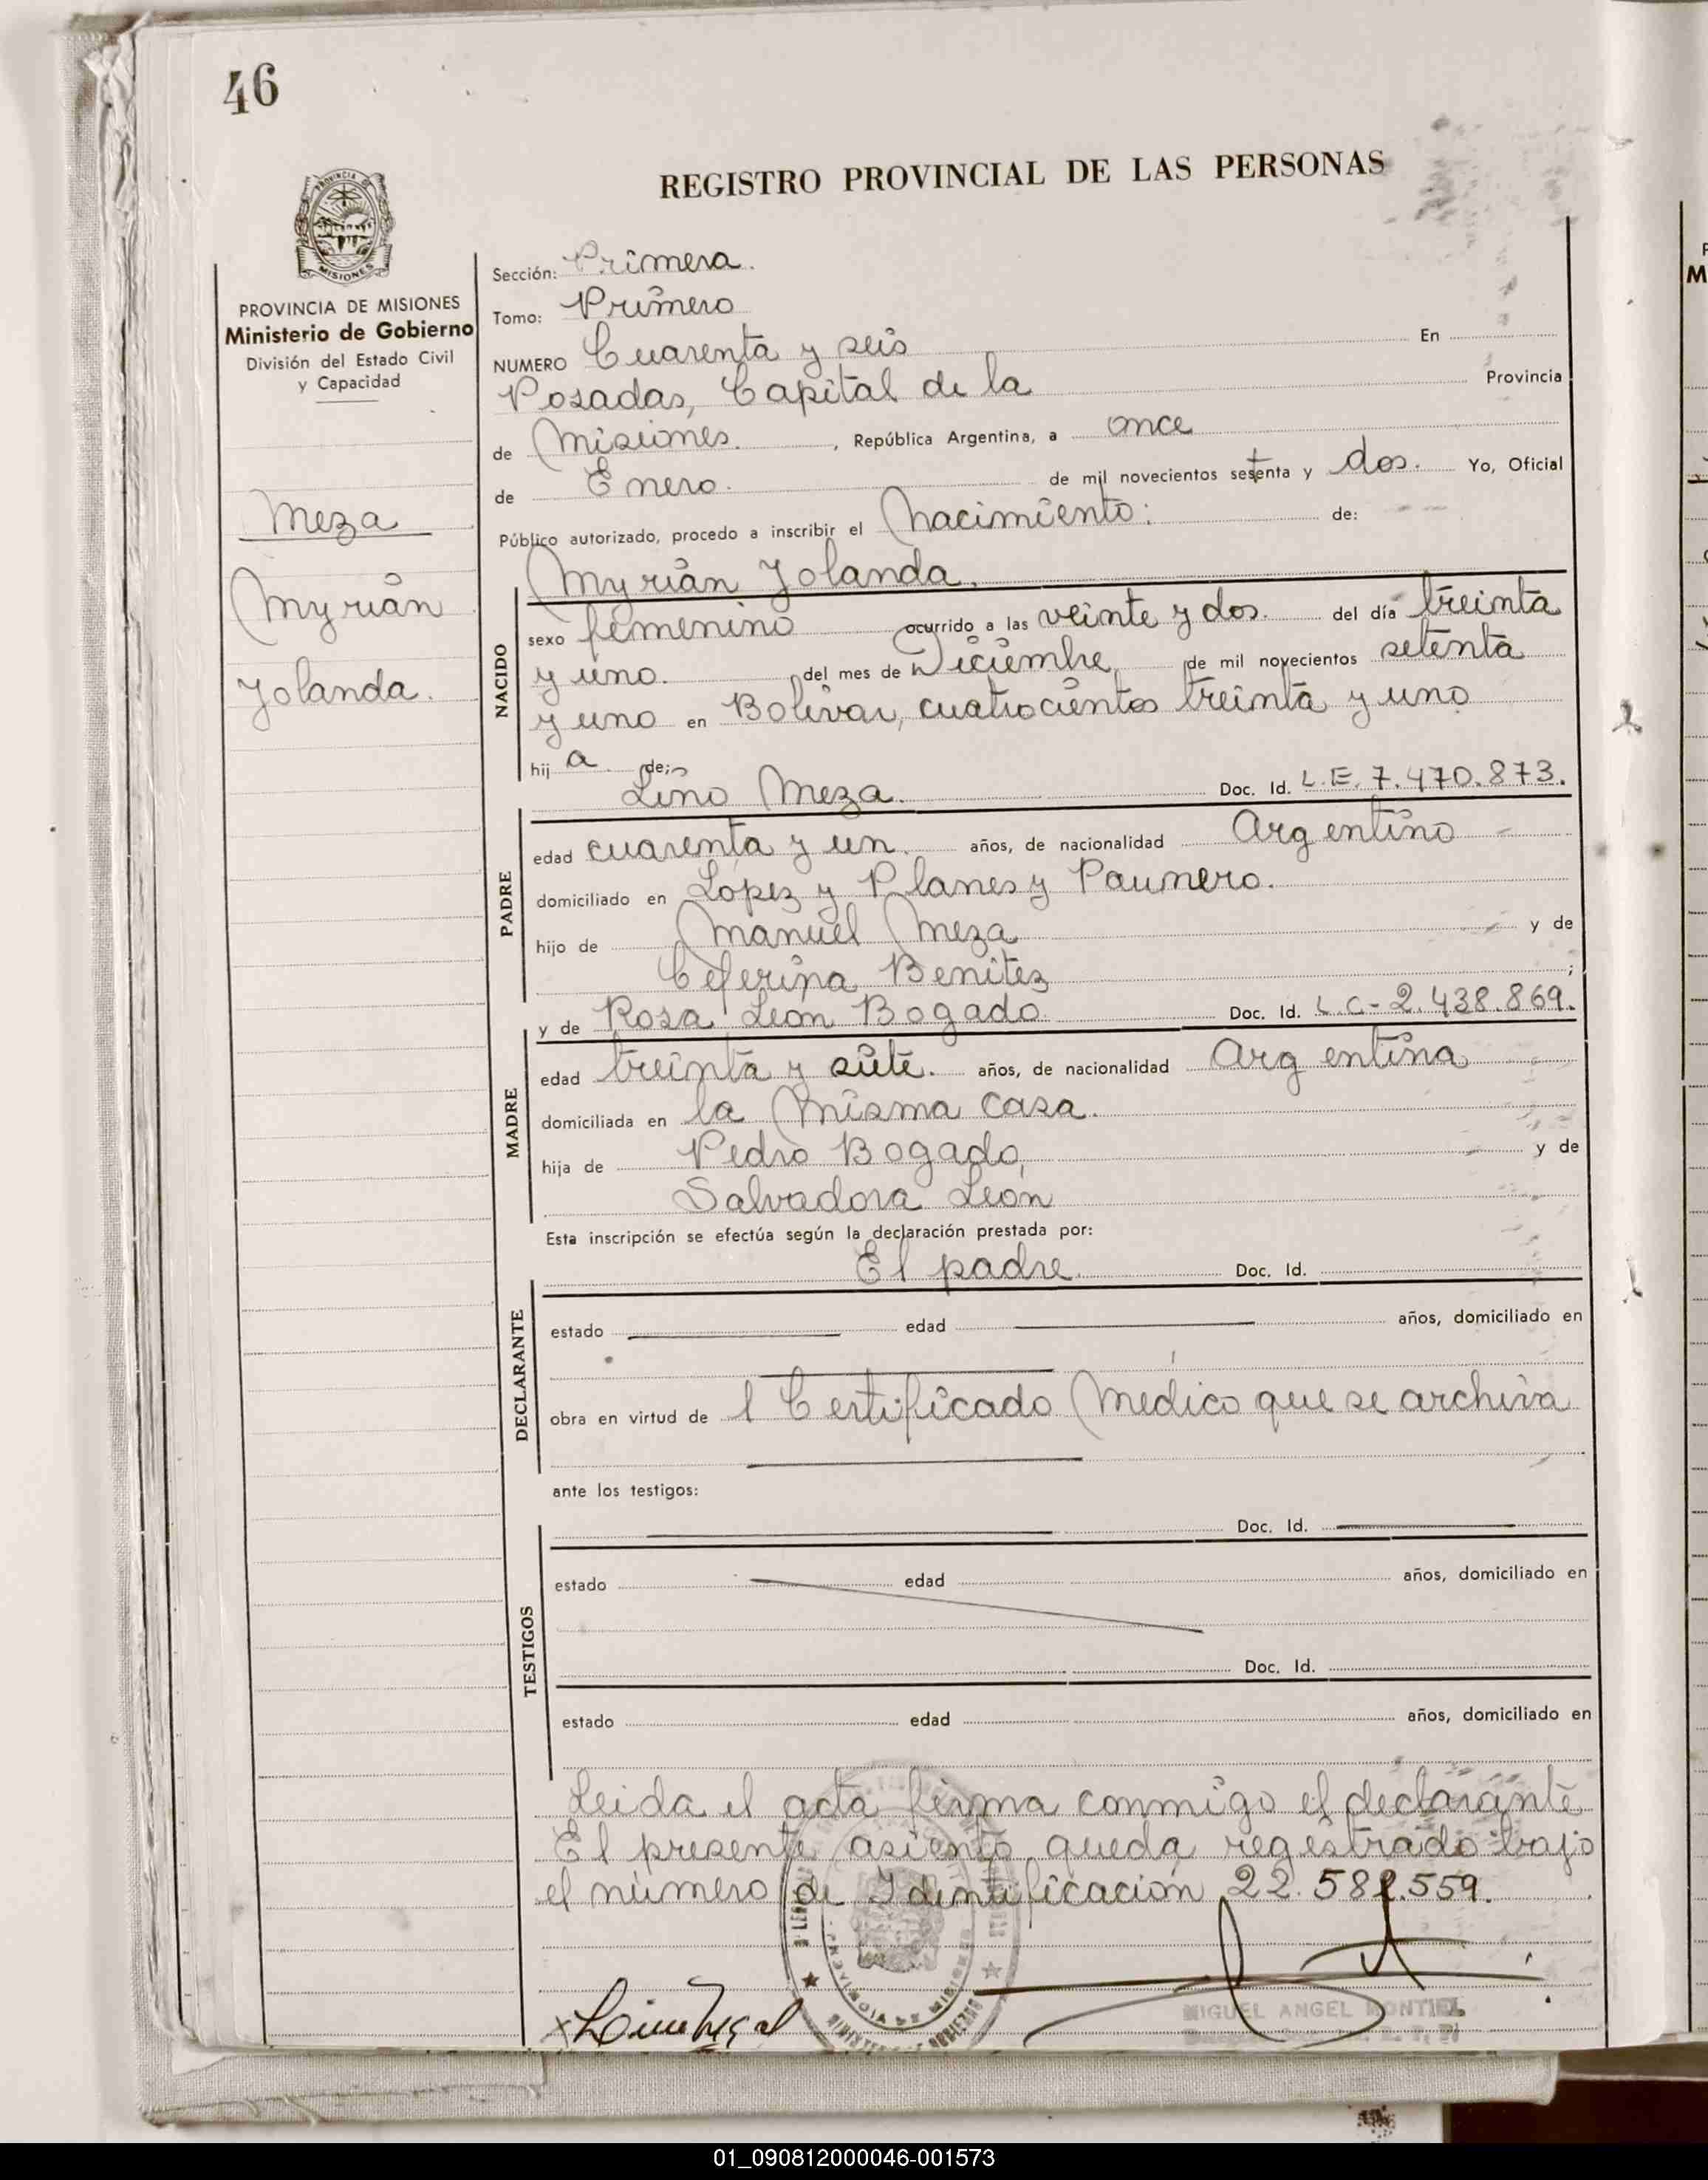 46
REGISTRO PROVINCIAL DE LAS PERSONAS
PROVINCIA DE MISIONES
Ministerio de Gobierno
División del Estado Civil
y Capacidad
Meza
Myrián
Yolanda.
Sección: Primera.
Tomo: Primero
NUMERO Cuarenta y seis En
Posadas, Capital de la Provincia
de Misiones. , República Argentina, a once
de Enero. de mil novecientos setenta y dos. Yo, Oficial
Público autorizado, procedo a inscribir el Nacimiento: de:
Myrián Yolanda.
NACIDO
sexo femenino ocurrido a las veinte y dos. del día treinta
y uno. del mes de Diciembre de mil novecientos setenta
y uno en Bolívar, cuatrocientos treinta y uno
hij a de;
Lino Meza. Doc. Id. L.E. 7.470.873.
PADRE
edad cuarenta y un. años, de nacionalidad Argentino
domiciliado en López y Planes y Paunero.
hijo de Manuel Meza y de
Ceferina Benitez ;
y de Rosa León Bogado Doc. Id. L.C-2.438.869.
MADRE
edad treinta y siete. años, de nacionalidad Argentina
domiciliada en la misma casa.
hija de Pedro Bogado, y de
Salvadora León
Esta inscripción se efectúa según la declaración prestada por:
El padre. Doc. Id.
DECLARANTE
estado edad años, domiciliado en
obra en virtud de l Certificado Médico que se archiva
ante los testigos:
Doc. Id.
TESTIGOS
estado edad años, domiciliado en
Doc. Id.
estado edad años, domiciliado en
Leida el acta firma conmigo el declarante
El presente asiento queda registrado bajo
el número de Identificación 22.581.559.
PROVINCIA DE MISIONES
MIGUEL ANGEL MONTIEL
01_090812000046-001573